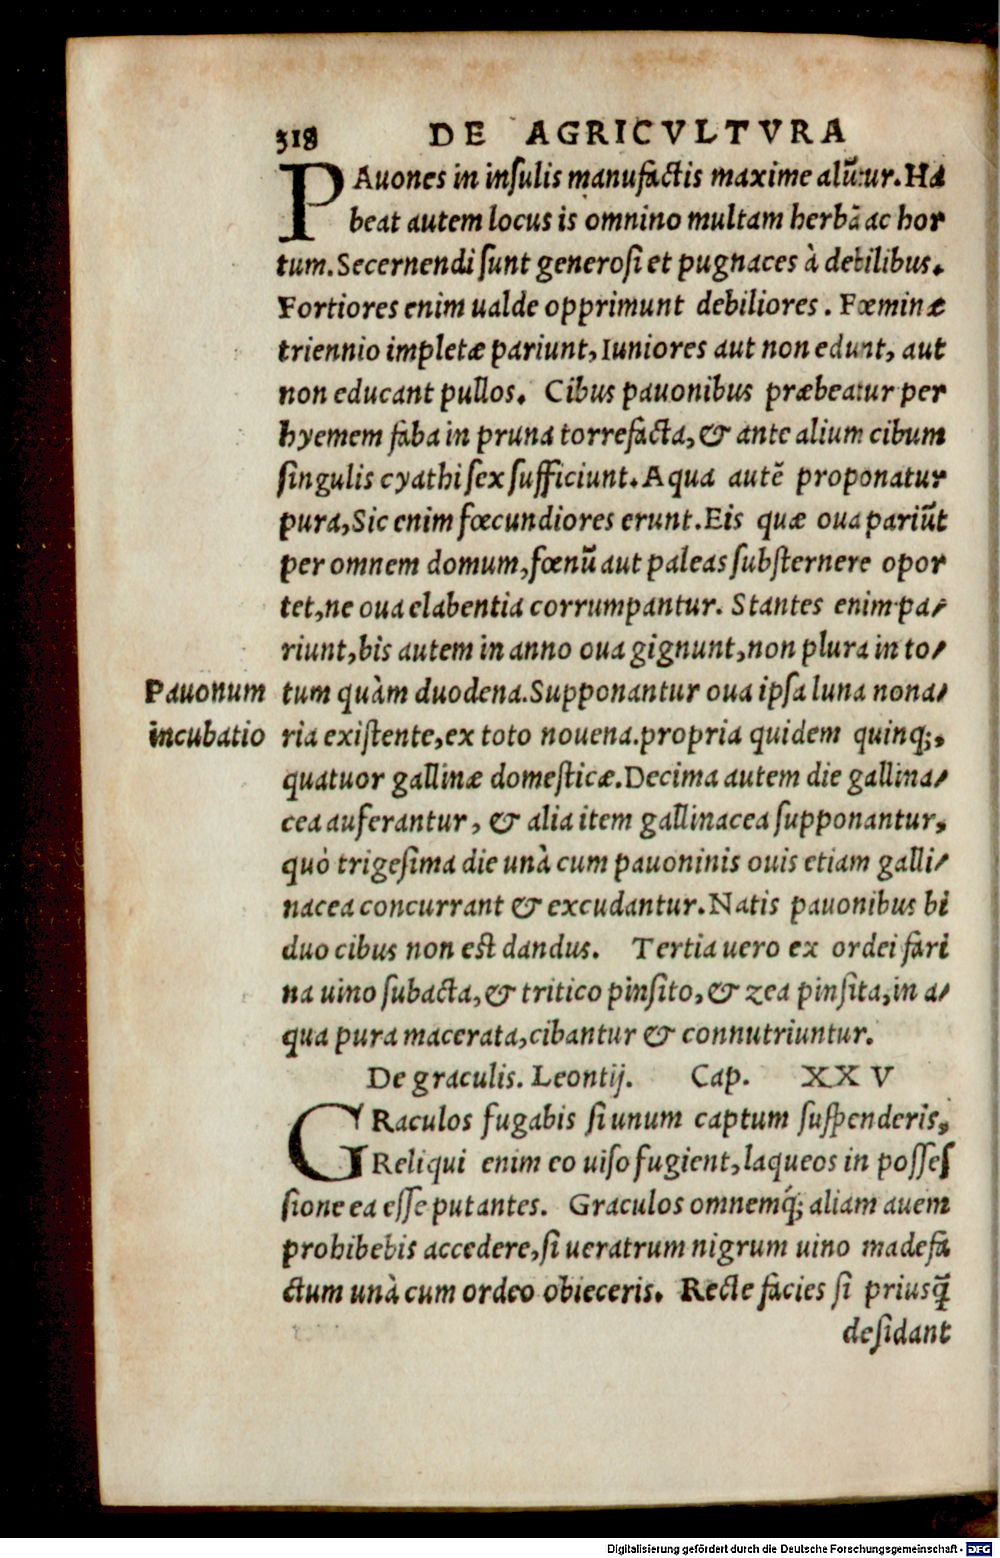 318 DE AGRICVLTVRA
PAuones in inſulis manufactis maxime alūtur. Ha
beat autem locus is omnino multam herbā ac hor
tum. Secernendi ſunt generoſi et pugnaces à debilibus.
Fortiores enim ualde opprimunt debiliores. Fœminæ
triennio impletæ pariunt, Iuniores aut non edunt, aut
non educant pullos. Cibus pauonibus præbeatur per
hyemem faba in pruna torrefacta, & ante alium cibum
ſingulis cyathi ſex ſufficiunt. Aqua autē proponatur
pura, Sic enim fœcundiores erunt. Eis quæ oua pariūt
per omnem domum, fœnū aut paleas ſubſternere opor
tet, ne oua elabentia corrumpantur. Stantes enim pa/
riunt, bis autem in anno oua gignunt, non plura in to/
Pauonum
incubatio
tum quàm duodena. Supponantur oua ipſa luna nona/
ria exiſtente, ex toto nouena. propria quidem quinq;,
quatuor gallinæ domeſticæ. Decima autem die gallina/
cea auferantur, & alia item gallinacea ſupponantur,
quò trigeſima die unà cum pauoninis ouis etiam galli/
nacea concurrant & excudantur. Natis pauonibus bi
duo cibus non eſt dandus. Tertia uero ex ordei fari
na uino ſubacta, & tritico pinſito, & zea pinſita, in a/
qua pura macerata, cibantur & connutriuntur.
De graculis. Leontij. Cap. XXV
GRaculos fugabis ſi unum captum ſuſpenderis,
Reliqui enim eo uiſo fugient, laqueos in poſſeſ
ſione ea eſſe putantes. Graculos omnemq́; aliam auem
prohibebis accedere, ſi ueratrum nigrum uino madefa
ctum unà cum ordeo obieceris. Recte facies ſi priusq̄
deſidant
Digitalisierung gefördert durch die Deutsche Forschungsgemeinschaft - DFG